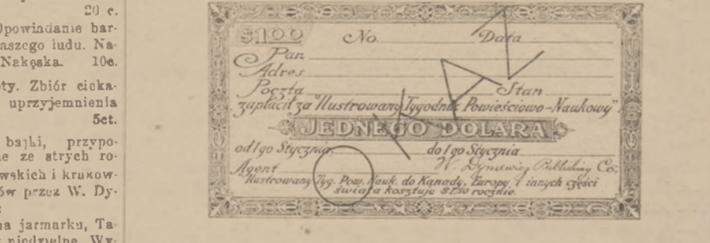 20 c.
Opowiadanie bar-
naszego ludu. Na-
Nakęska. 10c.
Zbiór cieka-
uprzyjemnienia
5ct.
bajki, przypo-
ze strych ro-
krakow-
przez W. Dy-
na jarmarku, Ta-
niedzielne. Wy-
$1.00 No. Data
Pan
Adres
Poczta Stan
zapłacił za "Ilustrowany Tygodnik Powieściowo-Naukowy"
JEDNEGO DOLARA
od 1go Stycznia, do 1go Stycznia
Agent W. Dyniewicz Publishing Co.
Ilustrowany Tyg. Pow. Nauk. do Kanady, Europy i innych części
świata kosztuje $1.50 rocznie.
OKAZ